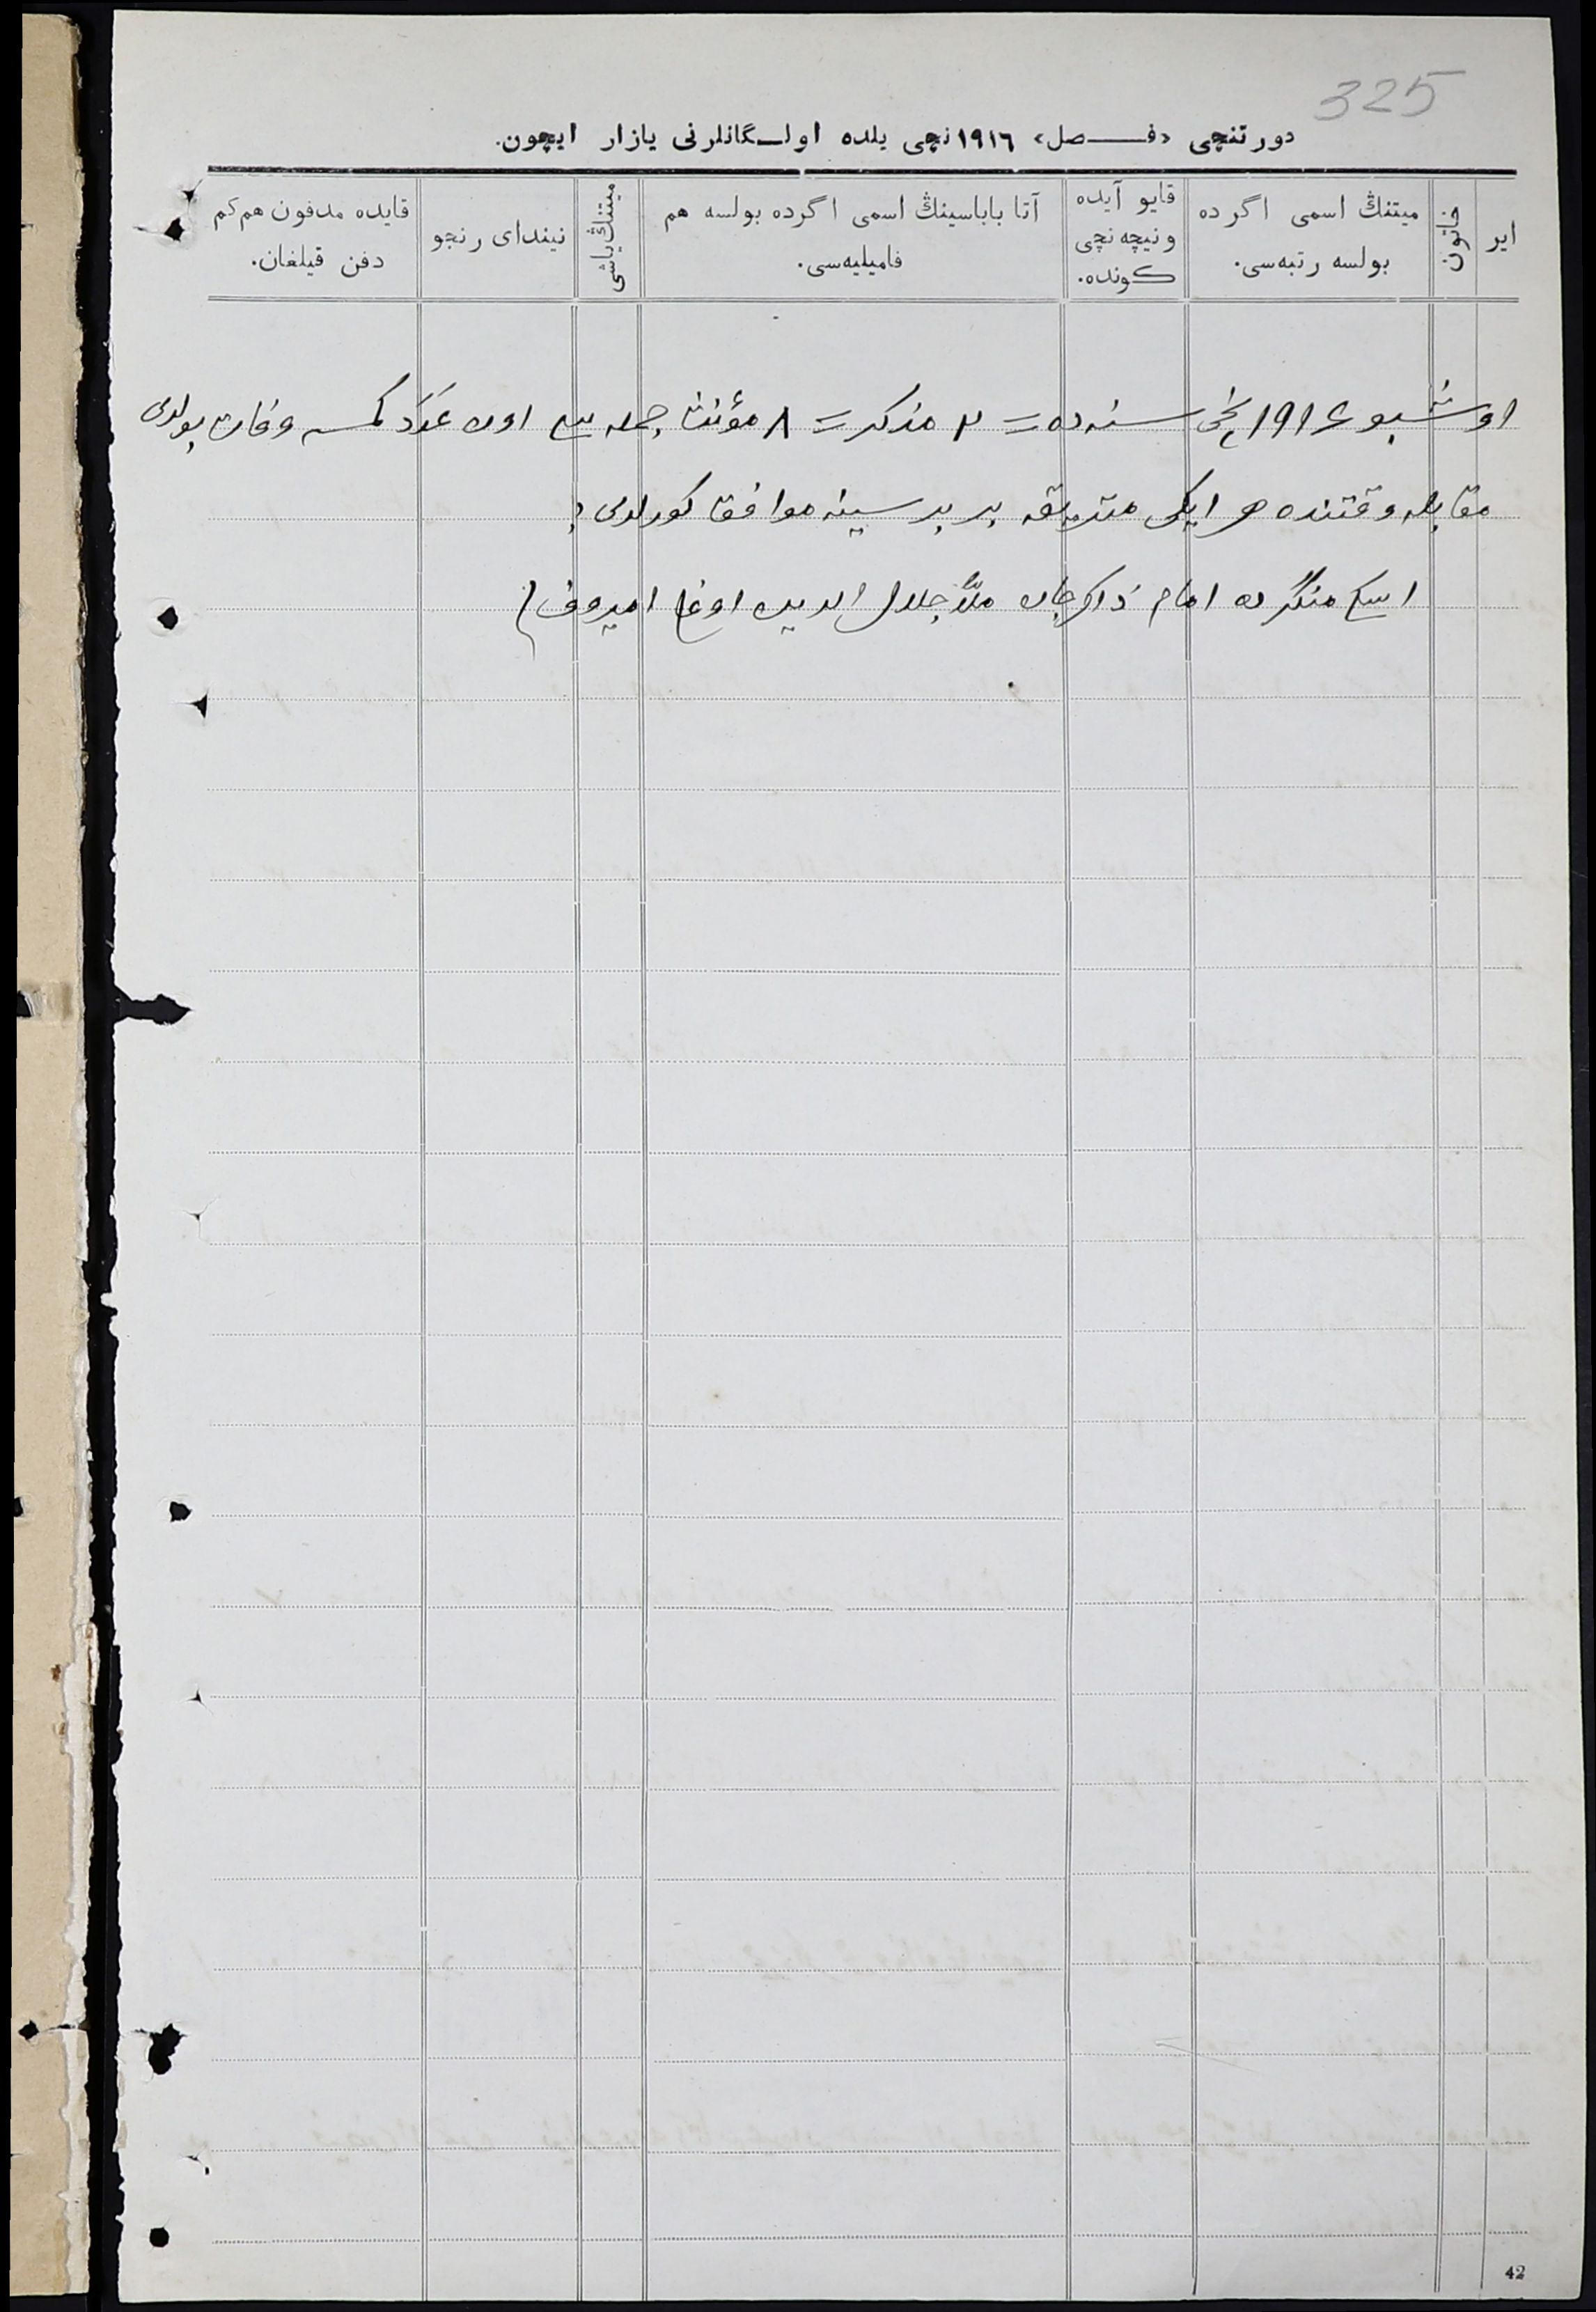 325
دورتنچی «فصل» ١٩١٦نچی یلده اولـگانلرنی یازار ایچون.
ایر
خاتون
میتنڭ اسمی اگرده
بولسه رتبه‌سی.
قایو آیده
و نیچه نچی
کونده.
آتا باباسینڭ اسمی اگرده بولسه هم
فامیلیه‌سی.
میتنڭ یاشی
نیندای رنجو
قایده مدفون هم کم
دفن قیلغان.
اوشبو ١٩١٦ نچی سنه‌ده = ٢ مذکر = ٨ مؤنث جمله‌سی اون عدد کمسه وفات بولدی
مقابله وقتنده هر ایکی متریقه بر برسینه موافق کورلدی
امام ذاکرجان ملا جلال الدین اوغلی امیروف
42